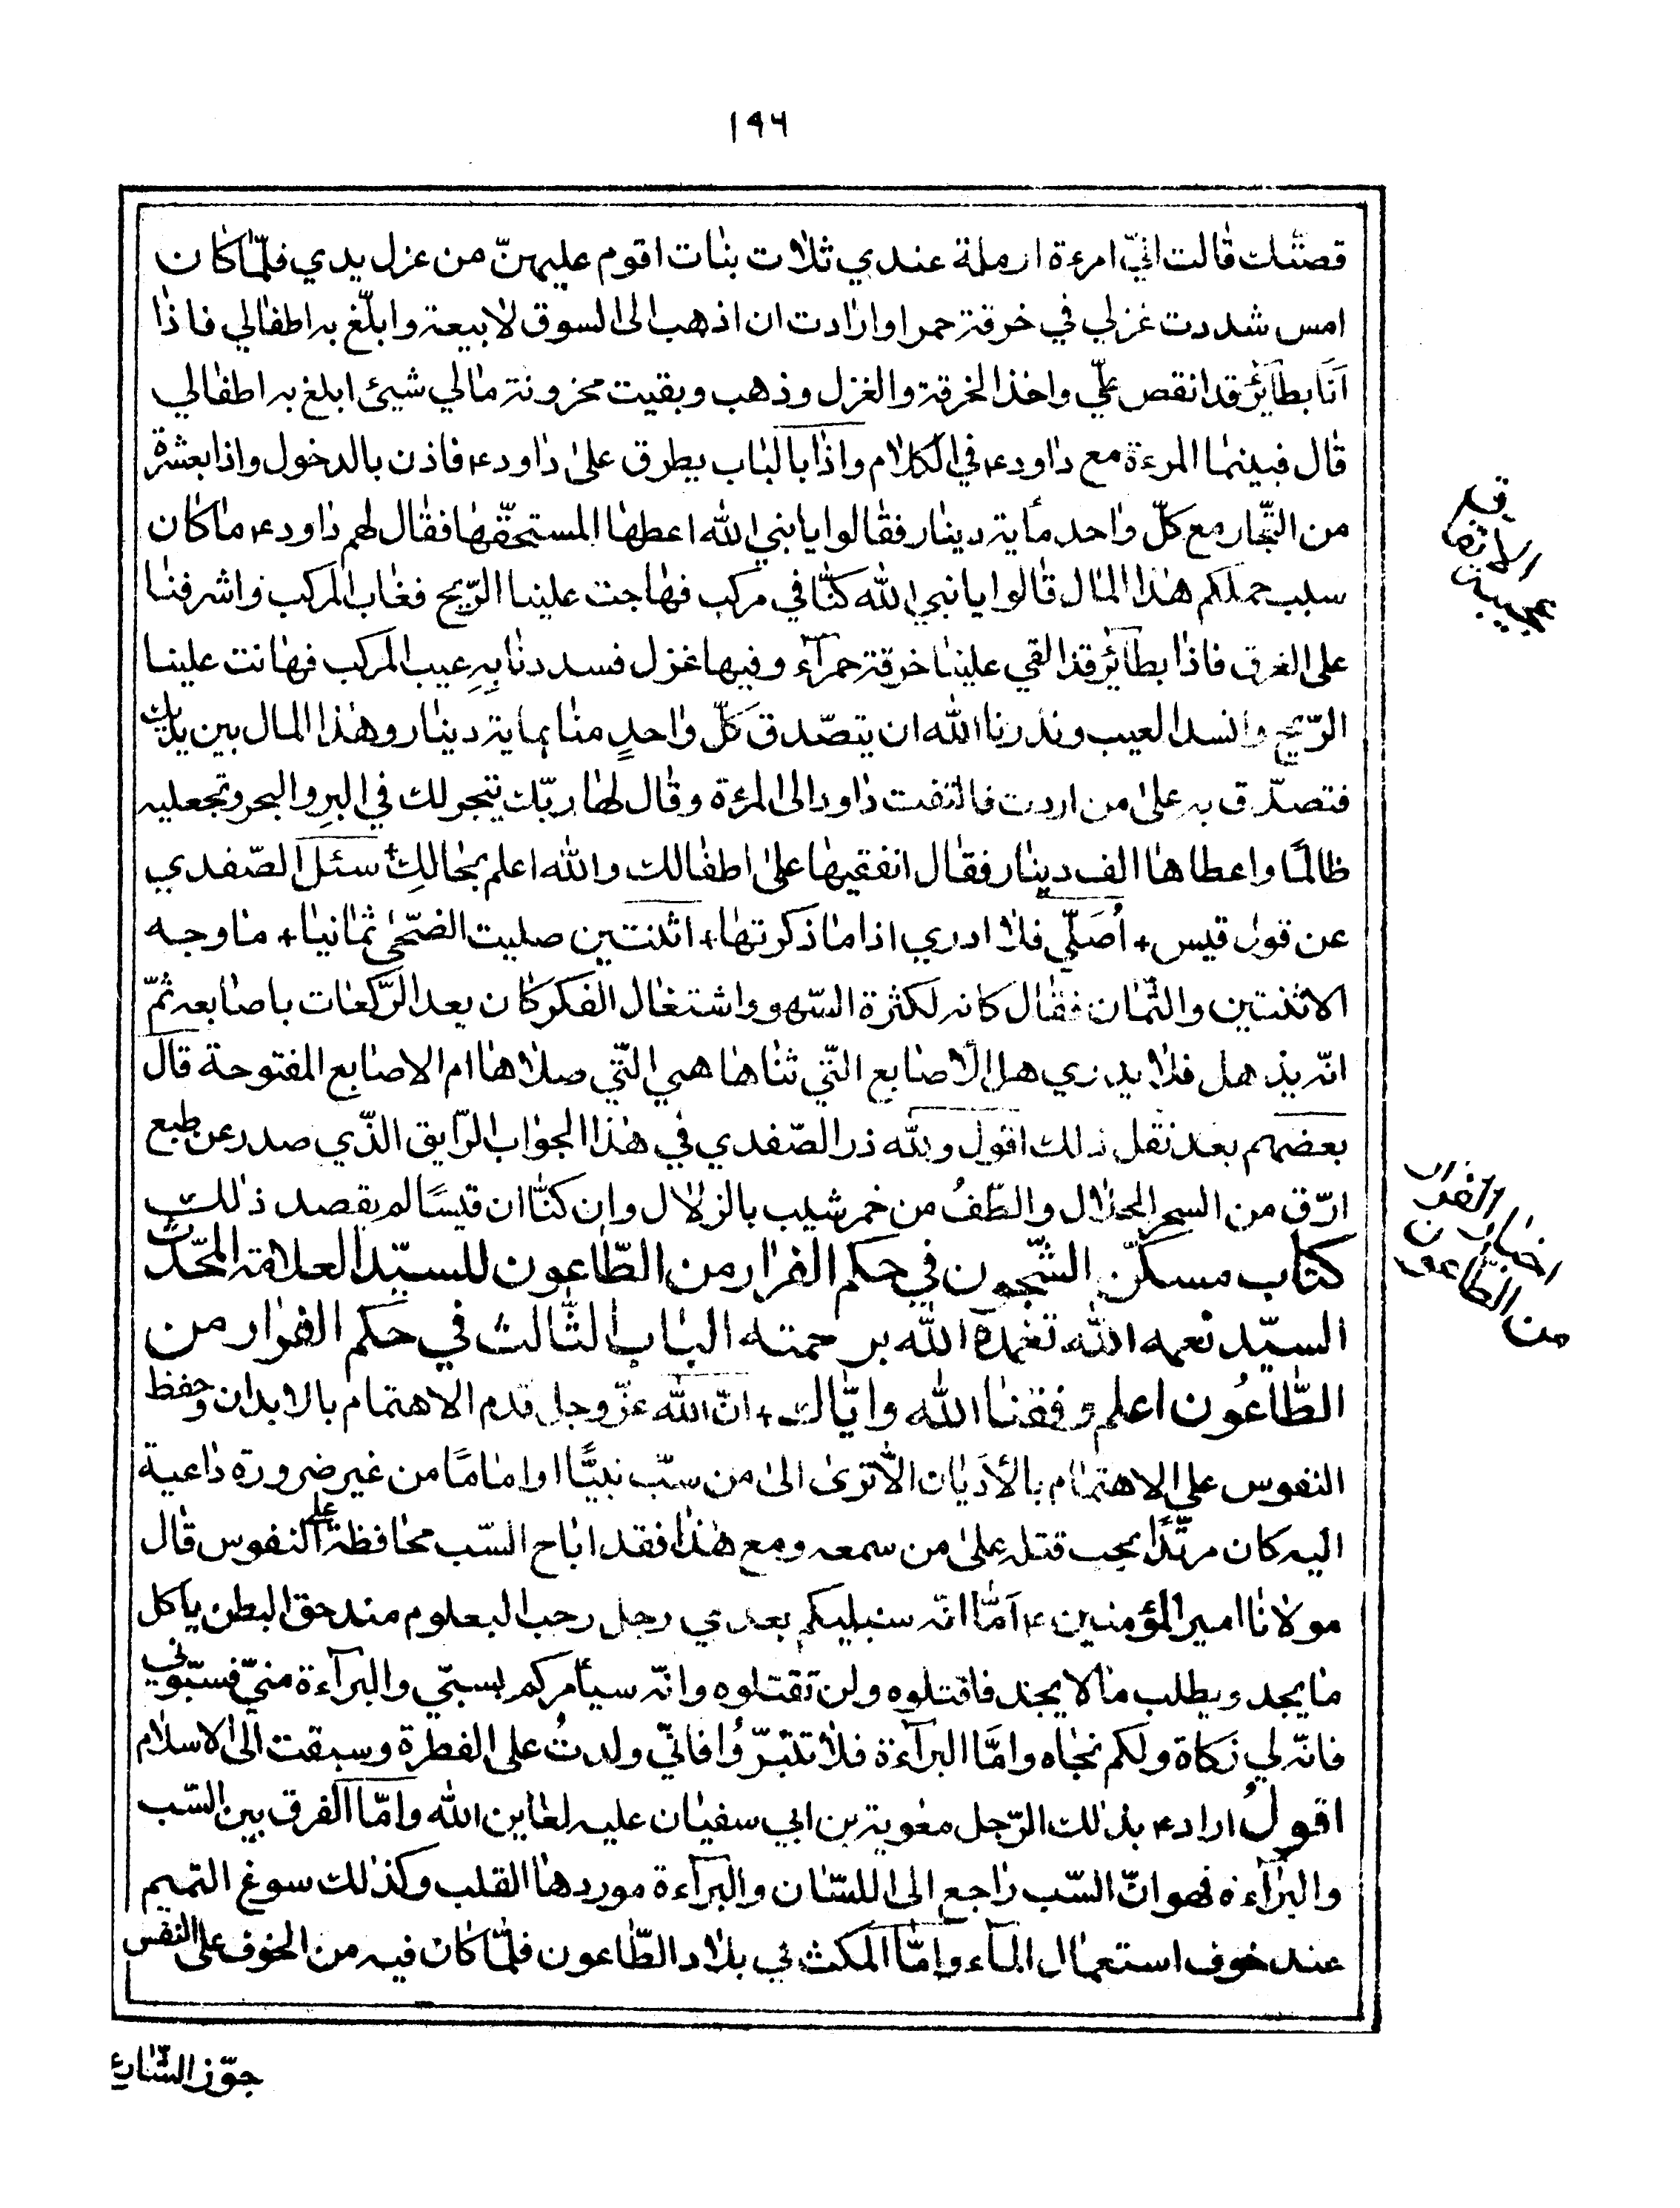 ١٩٦
قصتك قالت انّي امرءة ارملة عندي ثلاث بنات اقوم عليهنّ من غزل يدي فلمّا كان
امس شددت غزلي في خرقة حمرا وارادت ان اذهب الى السوق لابيعه وابلّغ به اطفالي فاذا
انا بطآئر قد انقص علّي واخذ الخرقة والغزل وذهب وبقيت محزونة مالي شيئ ابلغ به اطفالي
قال فبينما المرءة مع داود ع في الكلام واذا بالباب يطرق على داود ع فاذن بالدخول واذا بعشرة
من التّجار مع كلّ واحد مأية دينار فقالوا يا نبي الله اعطها المستحقّها فقال لهم داود ع ما كان
سبب حملكم هذا المال قالوا يا نبي الله كنّا في مركب فهاجت علينا الرّيح فغاب المركب واشرفنا
على الغرق فاذا بطآئر قد القي علينا خرقة حمرآء وفيها غزل فسددنا بِهِ عيب المركب فهانت علينا
الرّيح وانسد العيب ونذرنا الله ان يتصّدق كلّ واحدٍ منا بماية دينار وهذا المال بين يديك
فتصدّق به على من اردت فالتفت داود الى المرءة وقال لها ربّك يتجر لك في البرِ والبحر وتجعليه
ظالمًا واعطاها الف دينار فقال انفقيها على اطفالك والله اعلم بحالكِ + سئل الصّفدي
عن قول قيس + أُصَلّي فلا ادري اذا ما ذكرتها + اثنتين صليت الضّحى ثمانيا + ما وجه
الاثنتين والثّمان فقال كانه لكثرة السّهو واشتغال الفكر كان يعد الرّكعات باصابعه ثمّ
انّه يذهل فلا يدري هل الاصابع التّي ثناها هي التّي صلاها ام الاصابع المفتوحة قال
بعضهم بعد نقل ذلك اقول ولله در الصّفدي في هذا الجواب الرّايق الذّي صدر عن طبع
ارّق من السحر الحلال والطّفُ من خمر شيب بالزلال وان كنّا ان قيسًا لم يقصد ذلك
كتاب مسكّن الشّجون في حكم الفرار من الطّاعون للسيّد العلامة المحّدث
السيّد نعمه الله تغمده الله برحمته الباب الثّالث في حكم الفرار من
الطّاعُون اعلم وفقنا الله وايّاك + انّ الله عزّ وجل قدم الاهتمام بالابدان وحفظ
النفوس على الاهتمام بالأديان الّا ترى الى من سبّ نبيًّا او امامًا من غير ضرورة داعية
اليه كان مرتّدًا يجب قتله على من سمعه ومع هذا فقد اباح السّب محافظة على النفوس قال
مولانا امير المؤمنين ع آمّا انّه سنبليكم بعدي رجل رحب البعلوم مندحق البطن يأكل
ما يجد ويطلب ما لا يجد فاقتلوه ولن تقتلوه وانّه سيأمركم بسبّي والبرآءة منّي فسبّوني
فانّه لي زكاة ولكم نجاه وامّا البرآءة فلا تتبرّؤا فانّي ولدتُ على الفطرة وسبقت الى الاسلام
اقولُ اراد ع بذلك الرّجل معوية بن ابي سفيان عليه لعاين الله وامّا الفرق بين السّب
والبرآءة فهو انّ السّب راجع الى اللسّان والبرآءة موردها القلب وكذلك سوغ التميم
عند خوف استعمال الماء وامّا المكث في بلاد الطّاعون فلمّا كان فيه من الخوف على النفس
جوّز الشّارع
اخبار الفرار
من الطّاعون